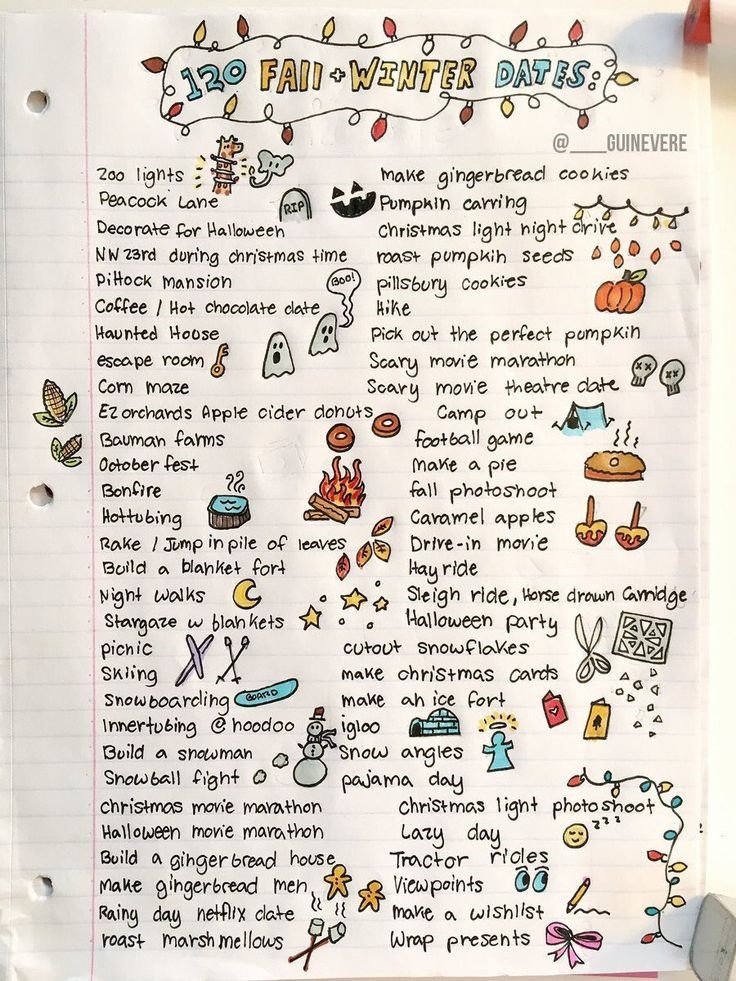 120 FAll + WINTER DATES:
@____GUINEVERE
zoo lights
Peacock Lane
RIP
Decorate for Halloween
NW 23rd during christmas time
Pittock Mansion
Coffee / Hot chocolate date
BOO!
Haunted House
escape room
Corn maze
EZ orchards Apple cider donuts
Bauman farms
October fest
Bonfire
Hottubing
Rake / Jump in pile of leaves
Build a blanket fort
Night walks
Stargaze w blankets
picnic
Skiing
Snowboarding
BOARD
Innertubing @ hoodoo
Build a snowman
Snowball fight
christmas movie marathon
Halloween movie marathon
Build a gingerbread house
Make gingerbread men
Rainy day netflix date
roast marshmellows
make gingerbread cookies
Pumpkin carving
christmas light night drive
roast pumpkin seeds
pillsbury cookies
Hike
Pick out the perfect pumpkin
Scary movie marathon
Scary movie theatre date
Camp out
football game
Make a pie
fall photoshoot
Caramel apples
Drive-in movie
Hay ride
Sleigh ride, Horse drawn Carridge
Halloween party
cutout snowflakes
make christmas cards
make an ice fort
igloo
Snow angles
pajama day
christmas light photoshoot
Lazy day
z z z
Tractor rides
Viewpoints
make a wishlist
Wrap presents